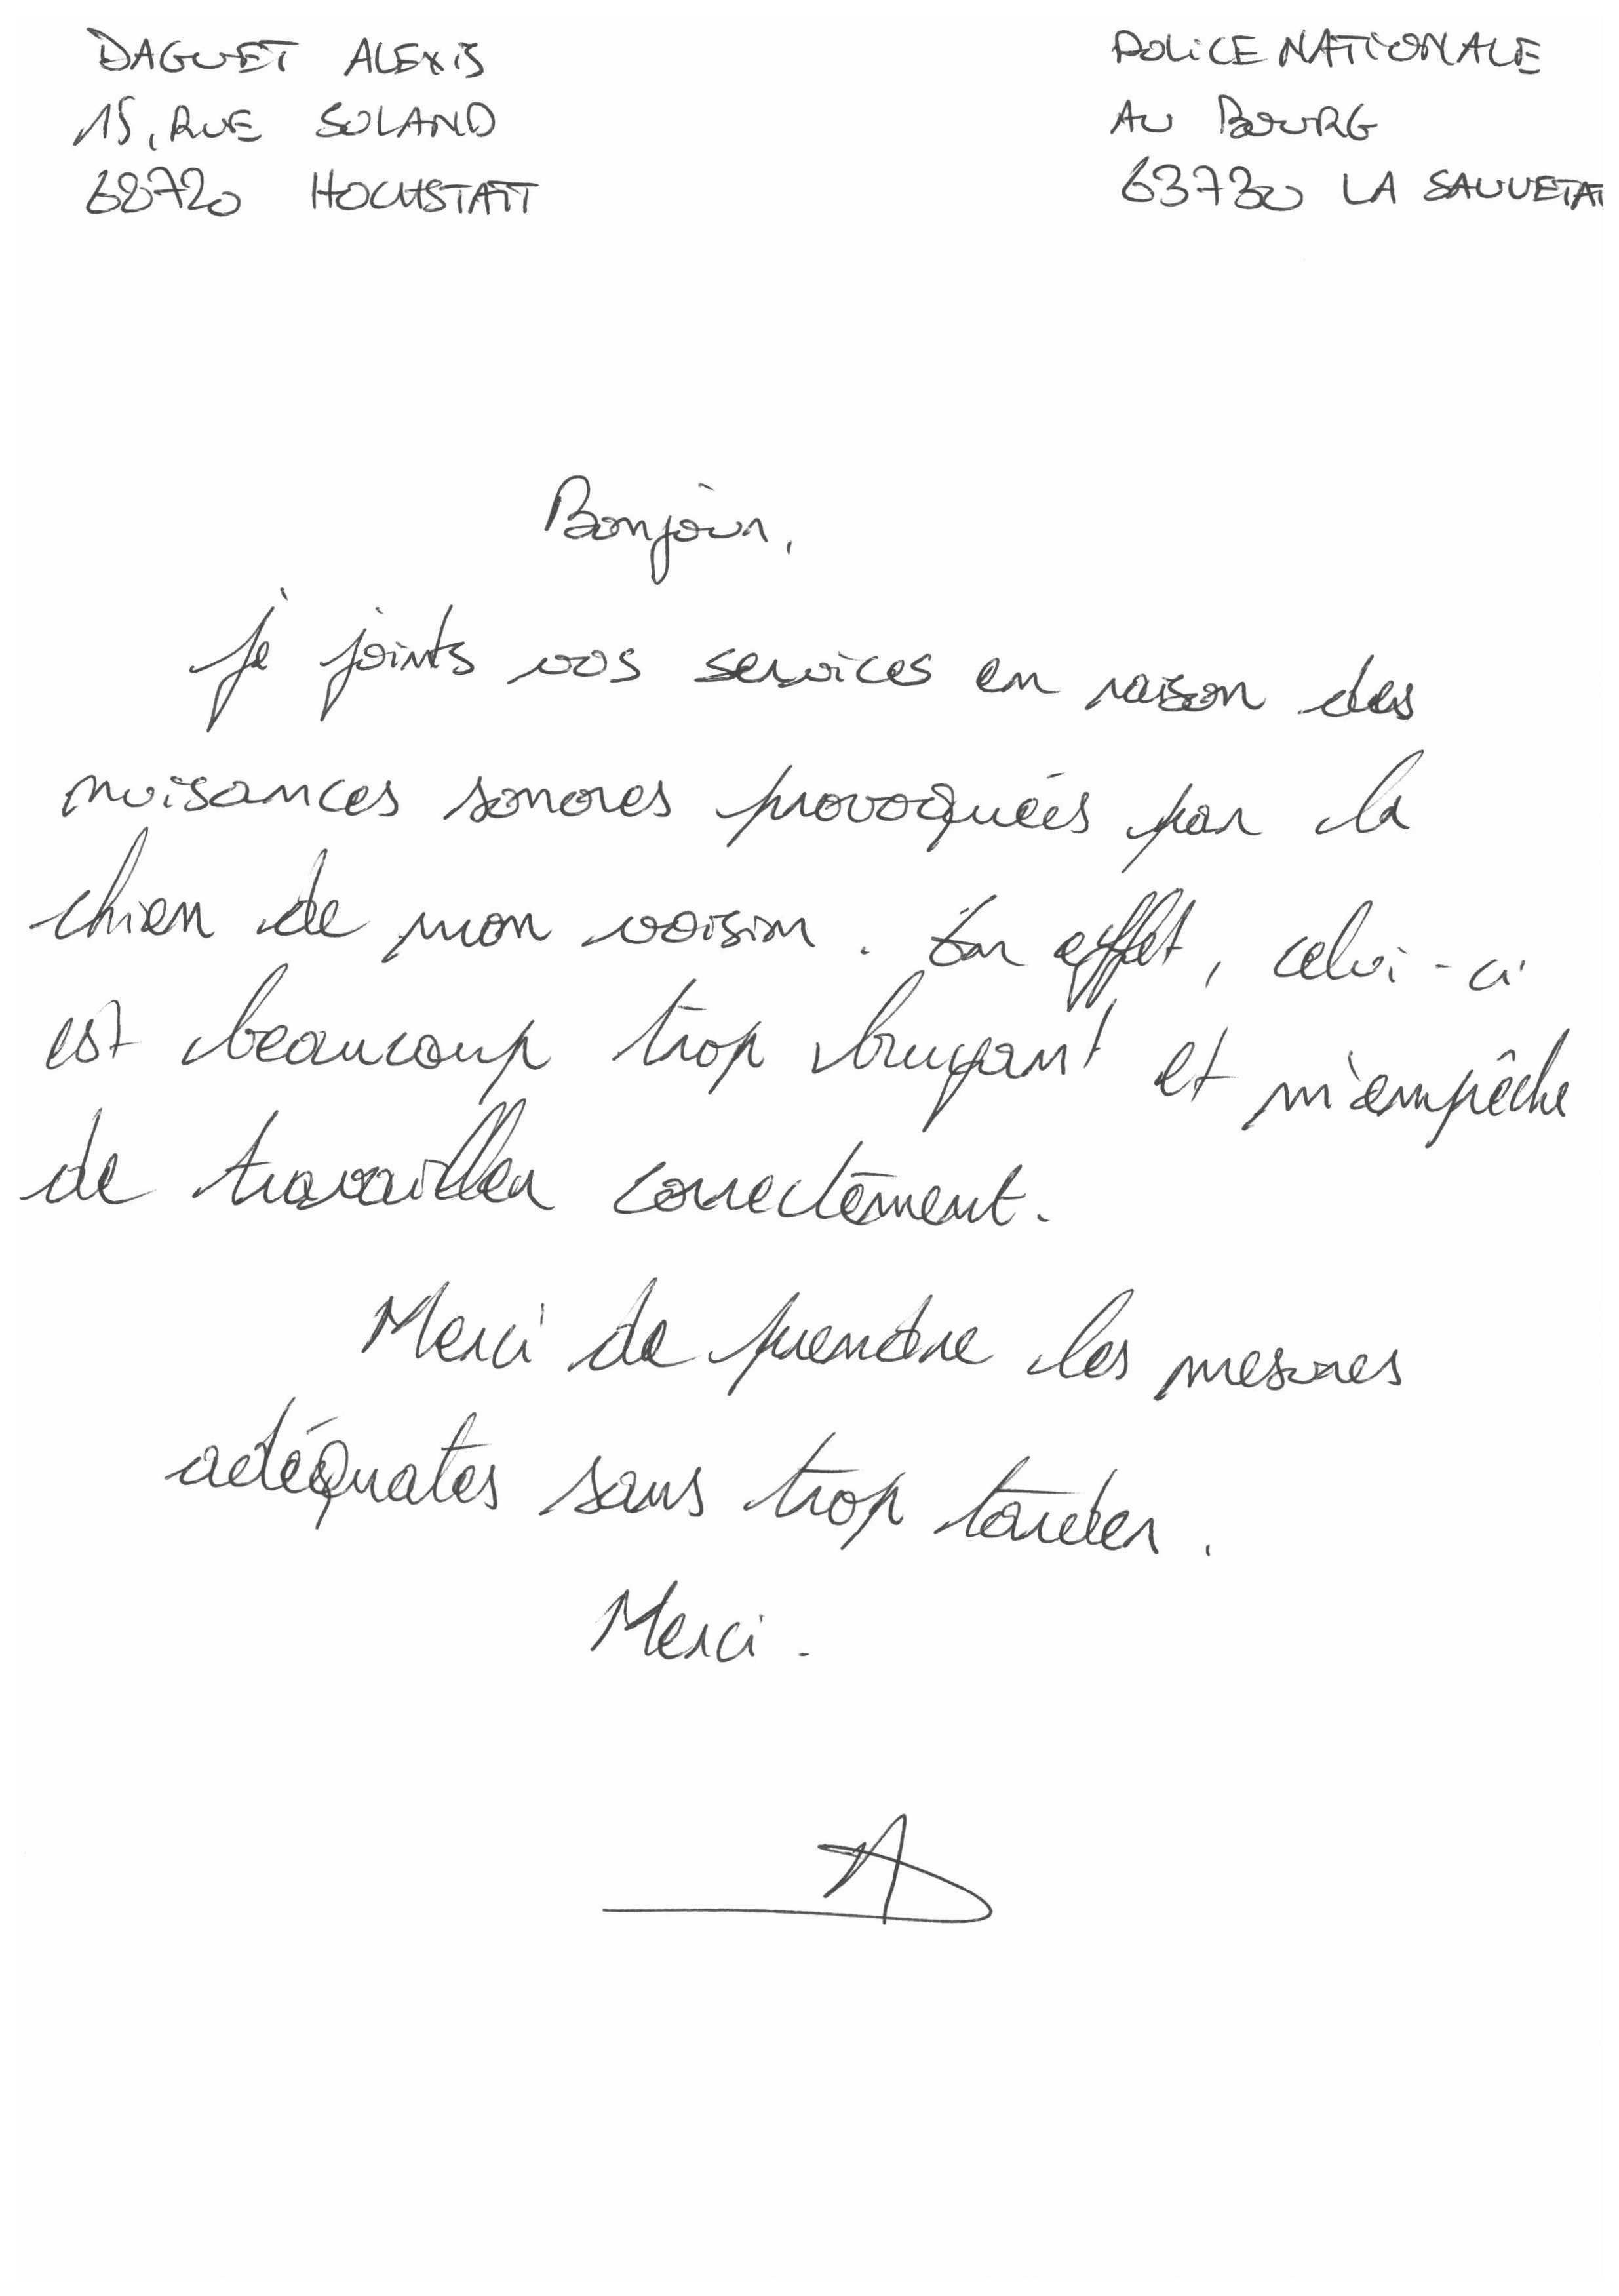 DAGUET ALEXIS
15, RUE SOLAND
68720 HOCHSTATT
POLICE NATIONALE
AU BOURG
63730 LA SAUVETAT
Bonjour,
je joints vos services en raison des
nuisances sonores provoquées par la
chien de mon voisin. En effet, celui-ci
est beaucoup trop bruyant et m'empêche
de travailler correctement.
Merci de prendre les mesures
adéquates sans trop tarder.
Merci.